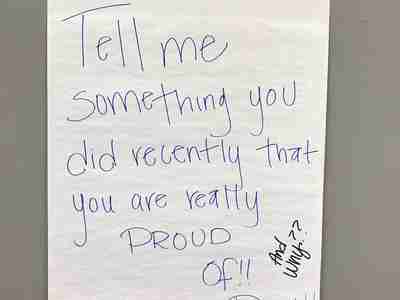 Tell me
something you
did recently that
you are really
PROUD
Of!!
And
Why??